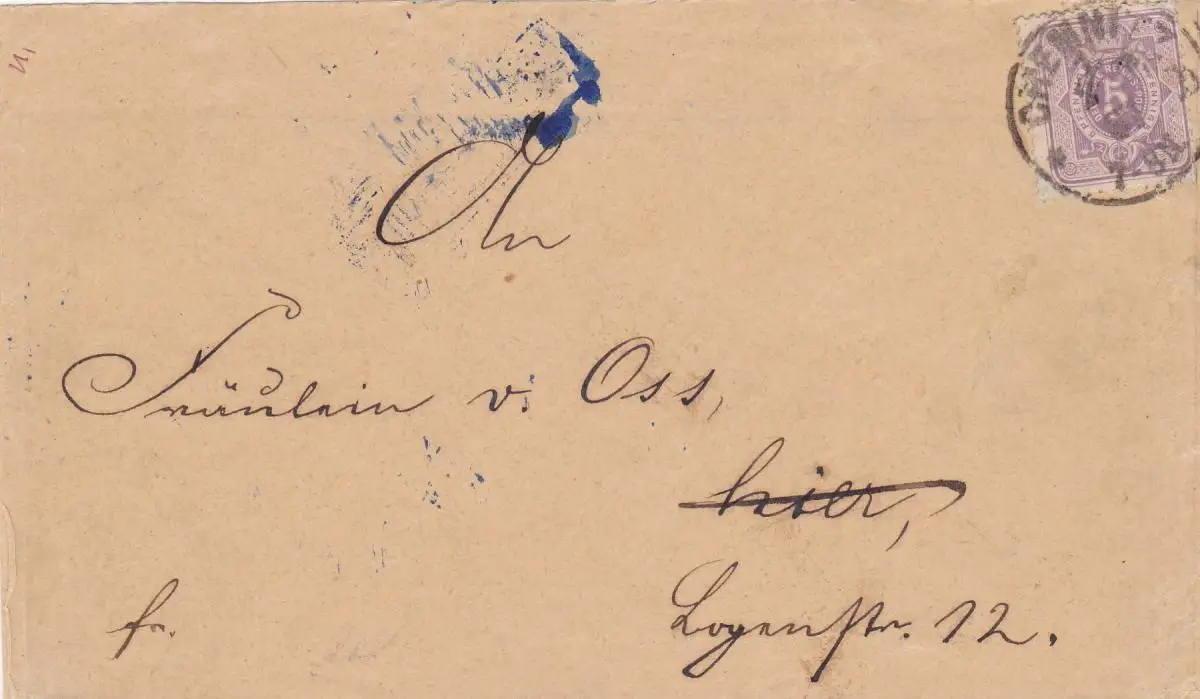 CHEMNI
5
An
Fräulein v. Oss,
hier,
fr.
Logenstr. 12.